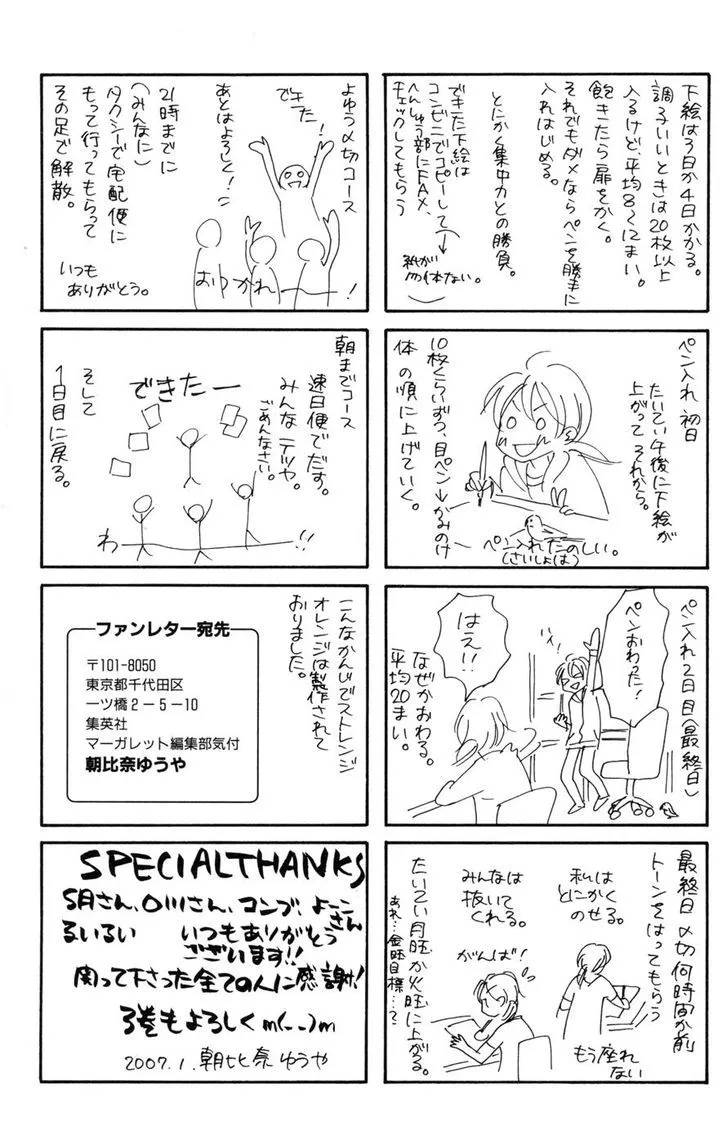 下絵は3日か4日かかる。
調子いいときは20枚以上
入るけど、平均8〜12まい。
飽きたら扉をかく。
それでもダメならペンを勝手に
入れはじめる。
とにかく集中力との勝負。
できた下絵は
コンビニでコピーして
へんしゅう部にFAX、
チェックしてもらう
紙が
勿体ない。
ペン入れ 初日
たいてい午後に下絵が
上がって それから。
10枚くらいずつ、目ペン→かみのけ
体 の順に上げていく。
ペン入れたのしい。
(さいしょは)
ペン入れ2日目(最終日)
ペンおわった!
はえ!!
なぜかおわる。
平均20まい。
最終日 〆切何時間か前
トーンをはってもらう
私は
とにかく
のせる。
みんなは
抜いて
くれる。
がんば!
もう座れ
ない
たいてい月旺か火旺に上がる。
あれ…金旺目標…?
よゆう〆切コース
でけ
た!
あとはよろしく!
21時までに
(みんなに)
タクシーで宅配便に
もって行ってもらって
その足で解散。
おつかれー!
いつも
ありがとう。
朝までコース
速日便でだす。
みんなテツヤ。
ごめんなさい。
できたー
わ
!!
そして
1日目に戻る。
こんなかんじでストレンジ
オレンジは製作されて
おりました。
ファンレター宛先
〒101-8050
東京都千代田区
一ツ橋2-5-10
集英社
マーガレット編集部気付
朝比奈ゆうや
SPECIALTHANKS
S月さん、O川さん、コンブ、よーこさん
るいるい いつもありがとう
ございます!!
関って下さった全ての人に感謝!
3巻もよろしくm(_ _)m
2007.1.朝比奈 ゆうや